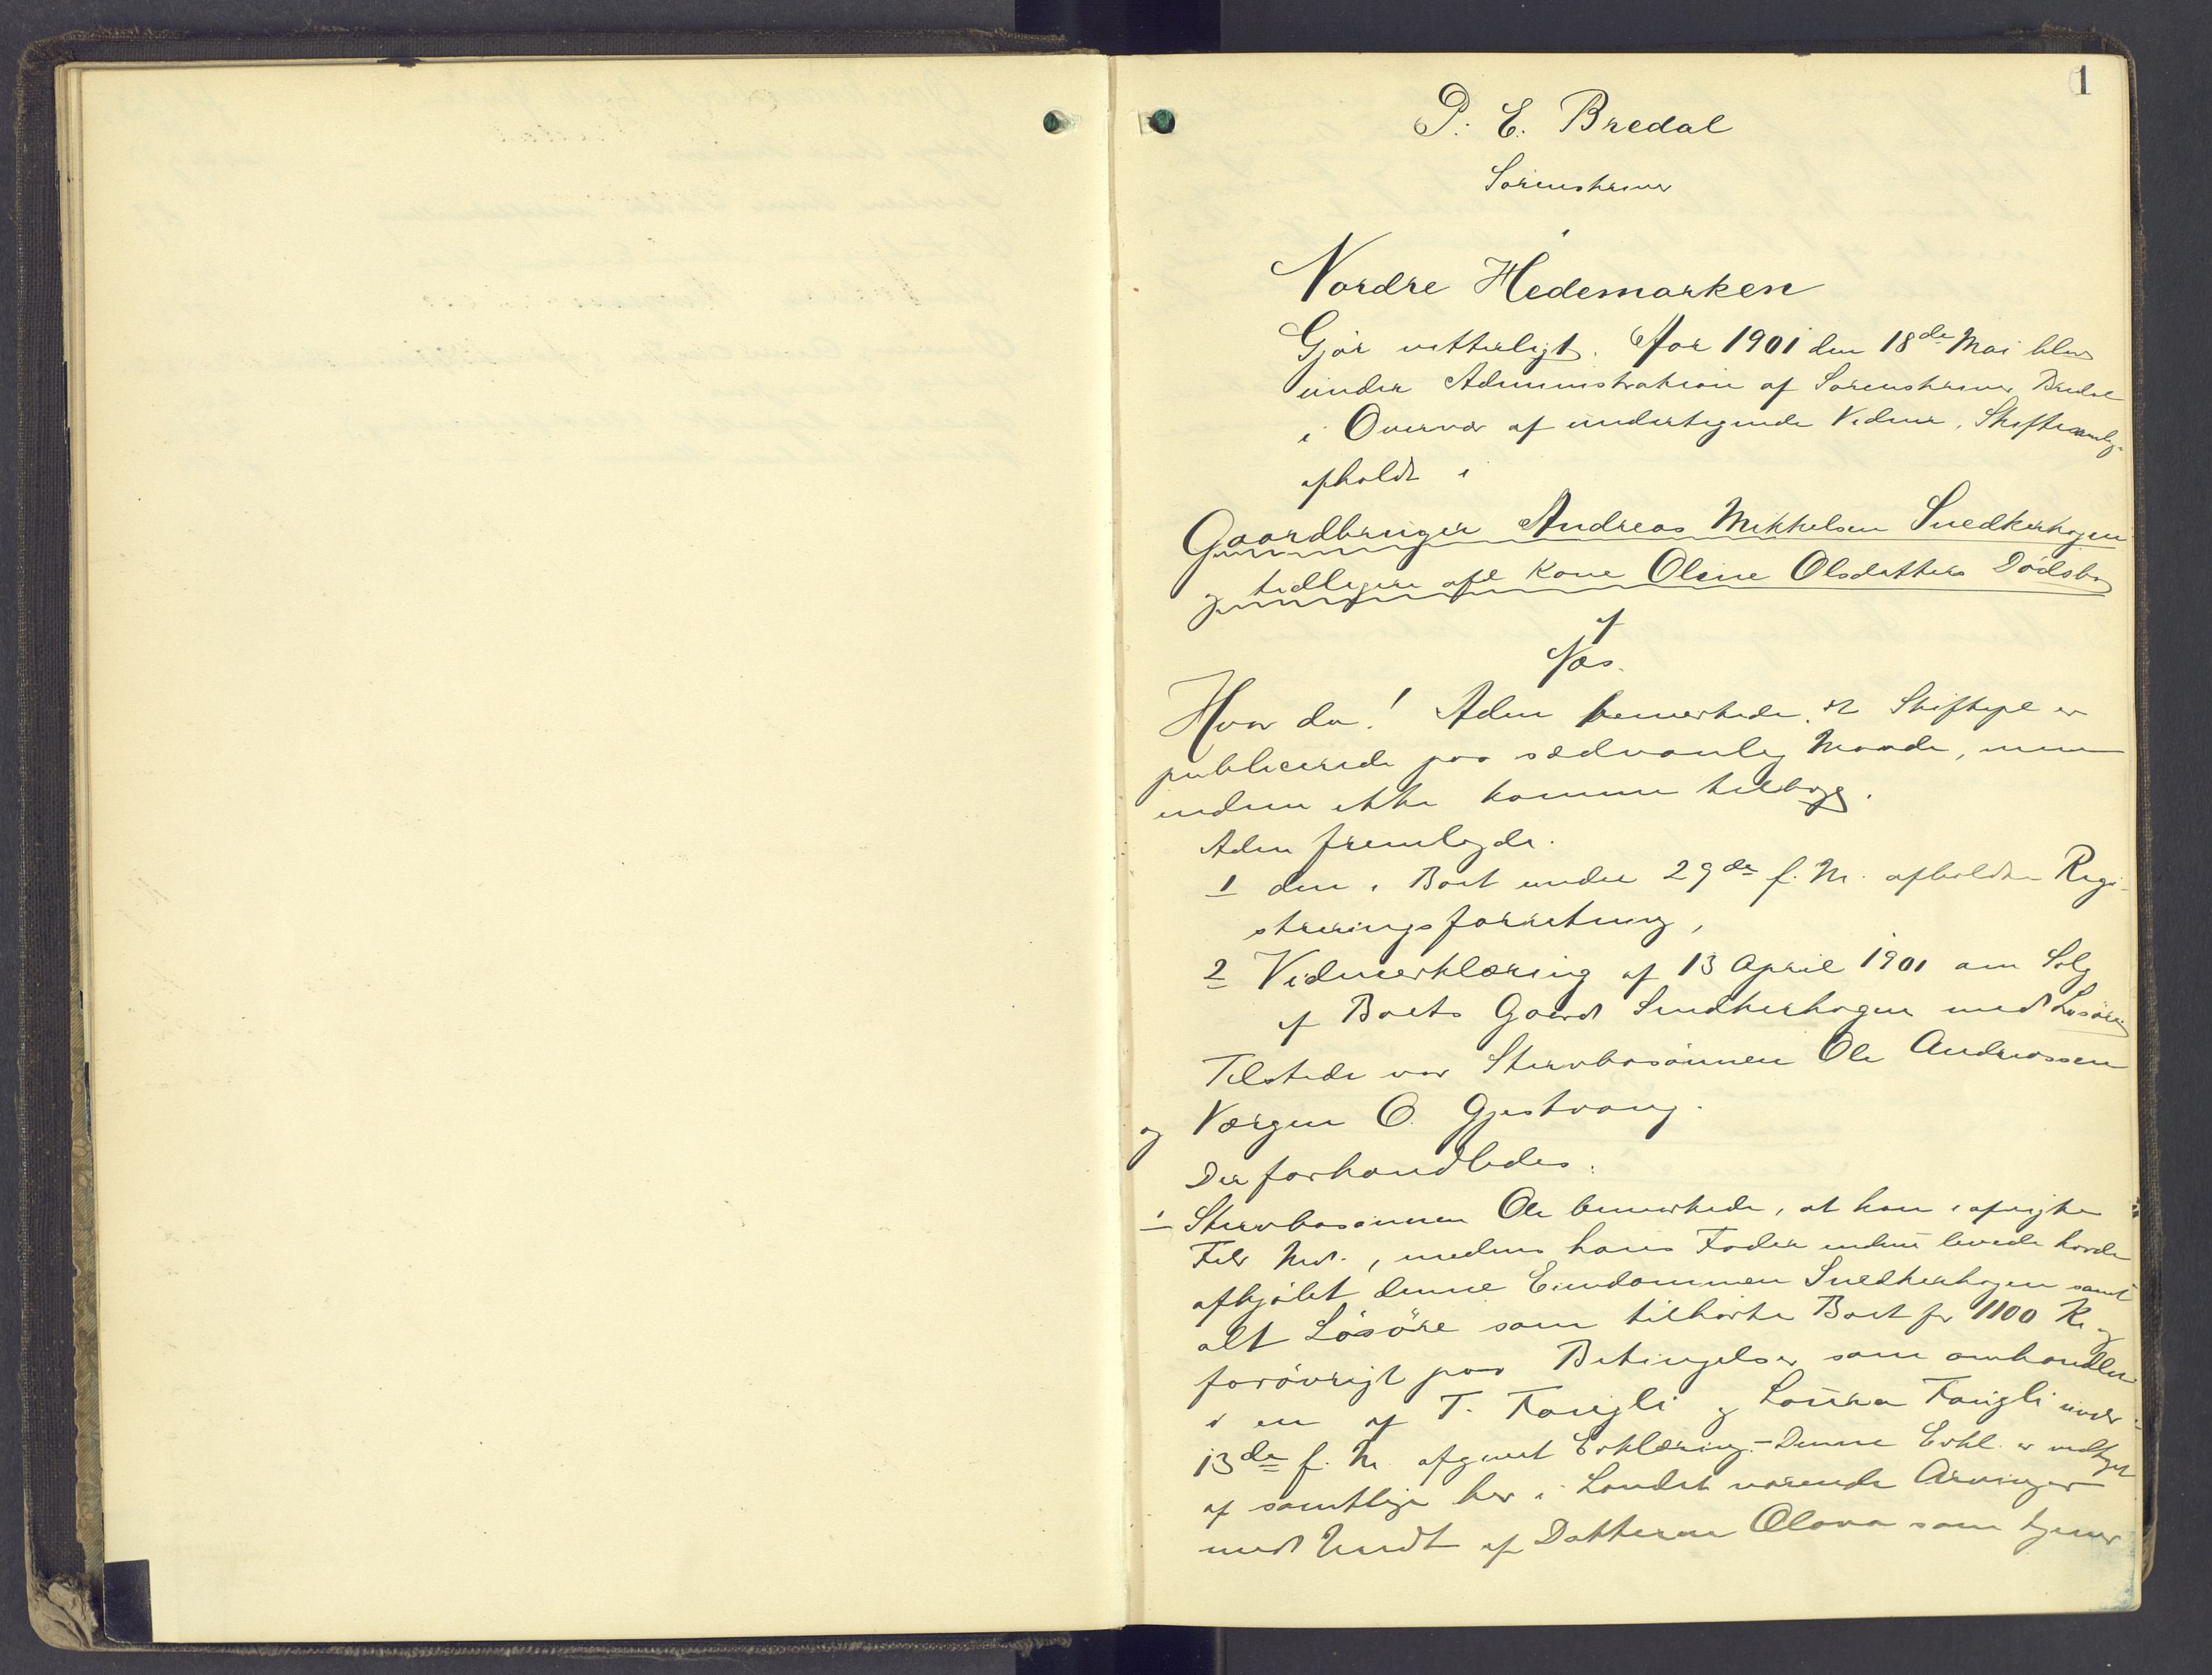 1
P. E. Bredal
Sorenskriver
i
Nordre Hedemarken
Gjør vitterligt. Aar 1901 den 18de Mai blev
under Administration af Sorenskriver Bredal
i Overvær af undertegnede Vidner, Skiftesamlg.
afholdt i
Gaardbruger Andreas Mikkelsen Snedkerhagen
og tidligere afd Kone Oline Olsdatters Dødsbo
af
Næs.
Hvor da! Adm bemerkede at Skiftepl er
publicerede paa sædvanlig Maade, men
endnu ikke kommen tilbage.
Adm fremlagde.
1 den i Boet under 29de f. M. afholdte Regi-
streringsforretning,
2 Vidneerklæring af 13 April 1901 om Salg
af Boets Gaard Snedkerhagen med Løsøre
Tilstede var Stervbosønnen Ole Andreassen
og Værgen O. Gjestvang.
Der forhandledes:
1 Stervbosønnen Ole bemerkede, at han i afvigte
Febr Md., medens hans Fader endnu levede havde
afkjøbt denne Eiendommen Snedkerhagen samt
alt Løsøre som tilhørte Boet for 1100 Kr og
forøvrigt paa Betingelser som omhandlet
i en af T. Fangli og Laura Fangli under
13de f. M. afgivet Erklæring. - Denne Erkl. er vedtaget
af samtlige her i Landet værende Arvinger
med Undt af Datteren Olava som tjener